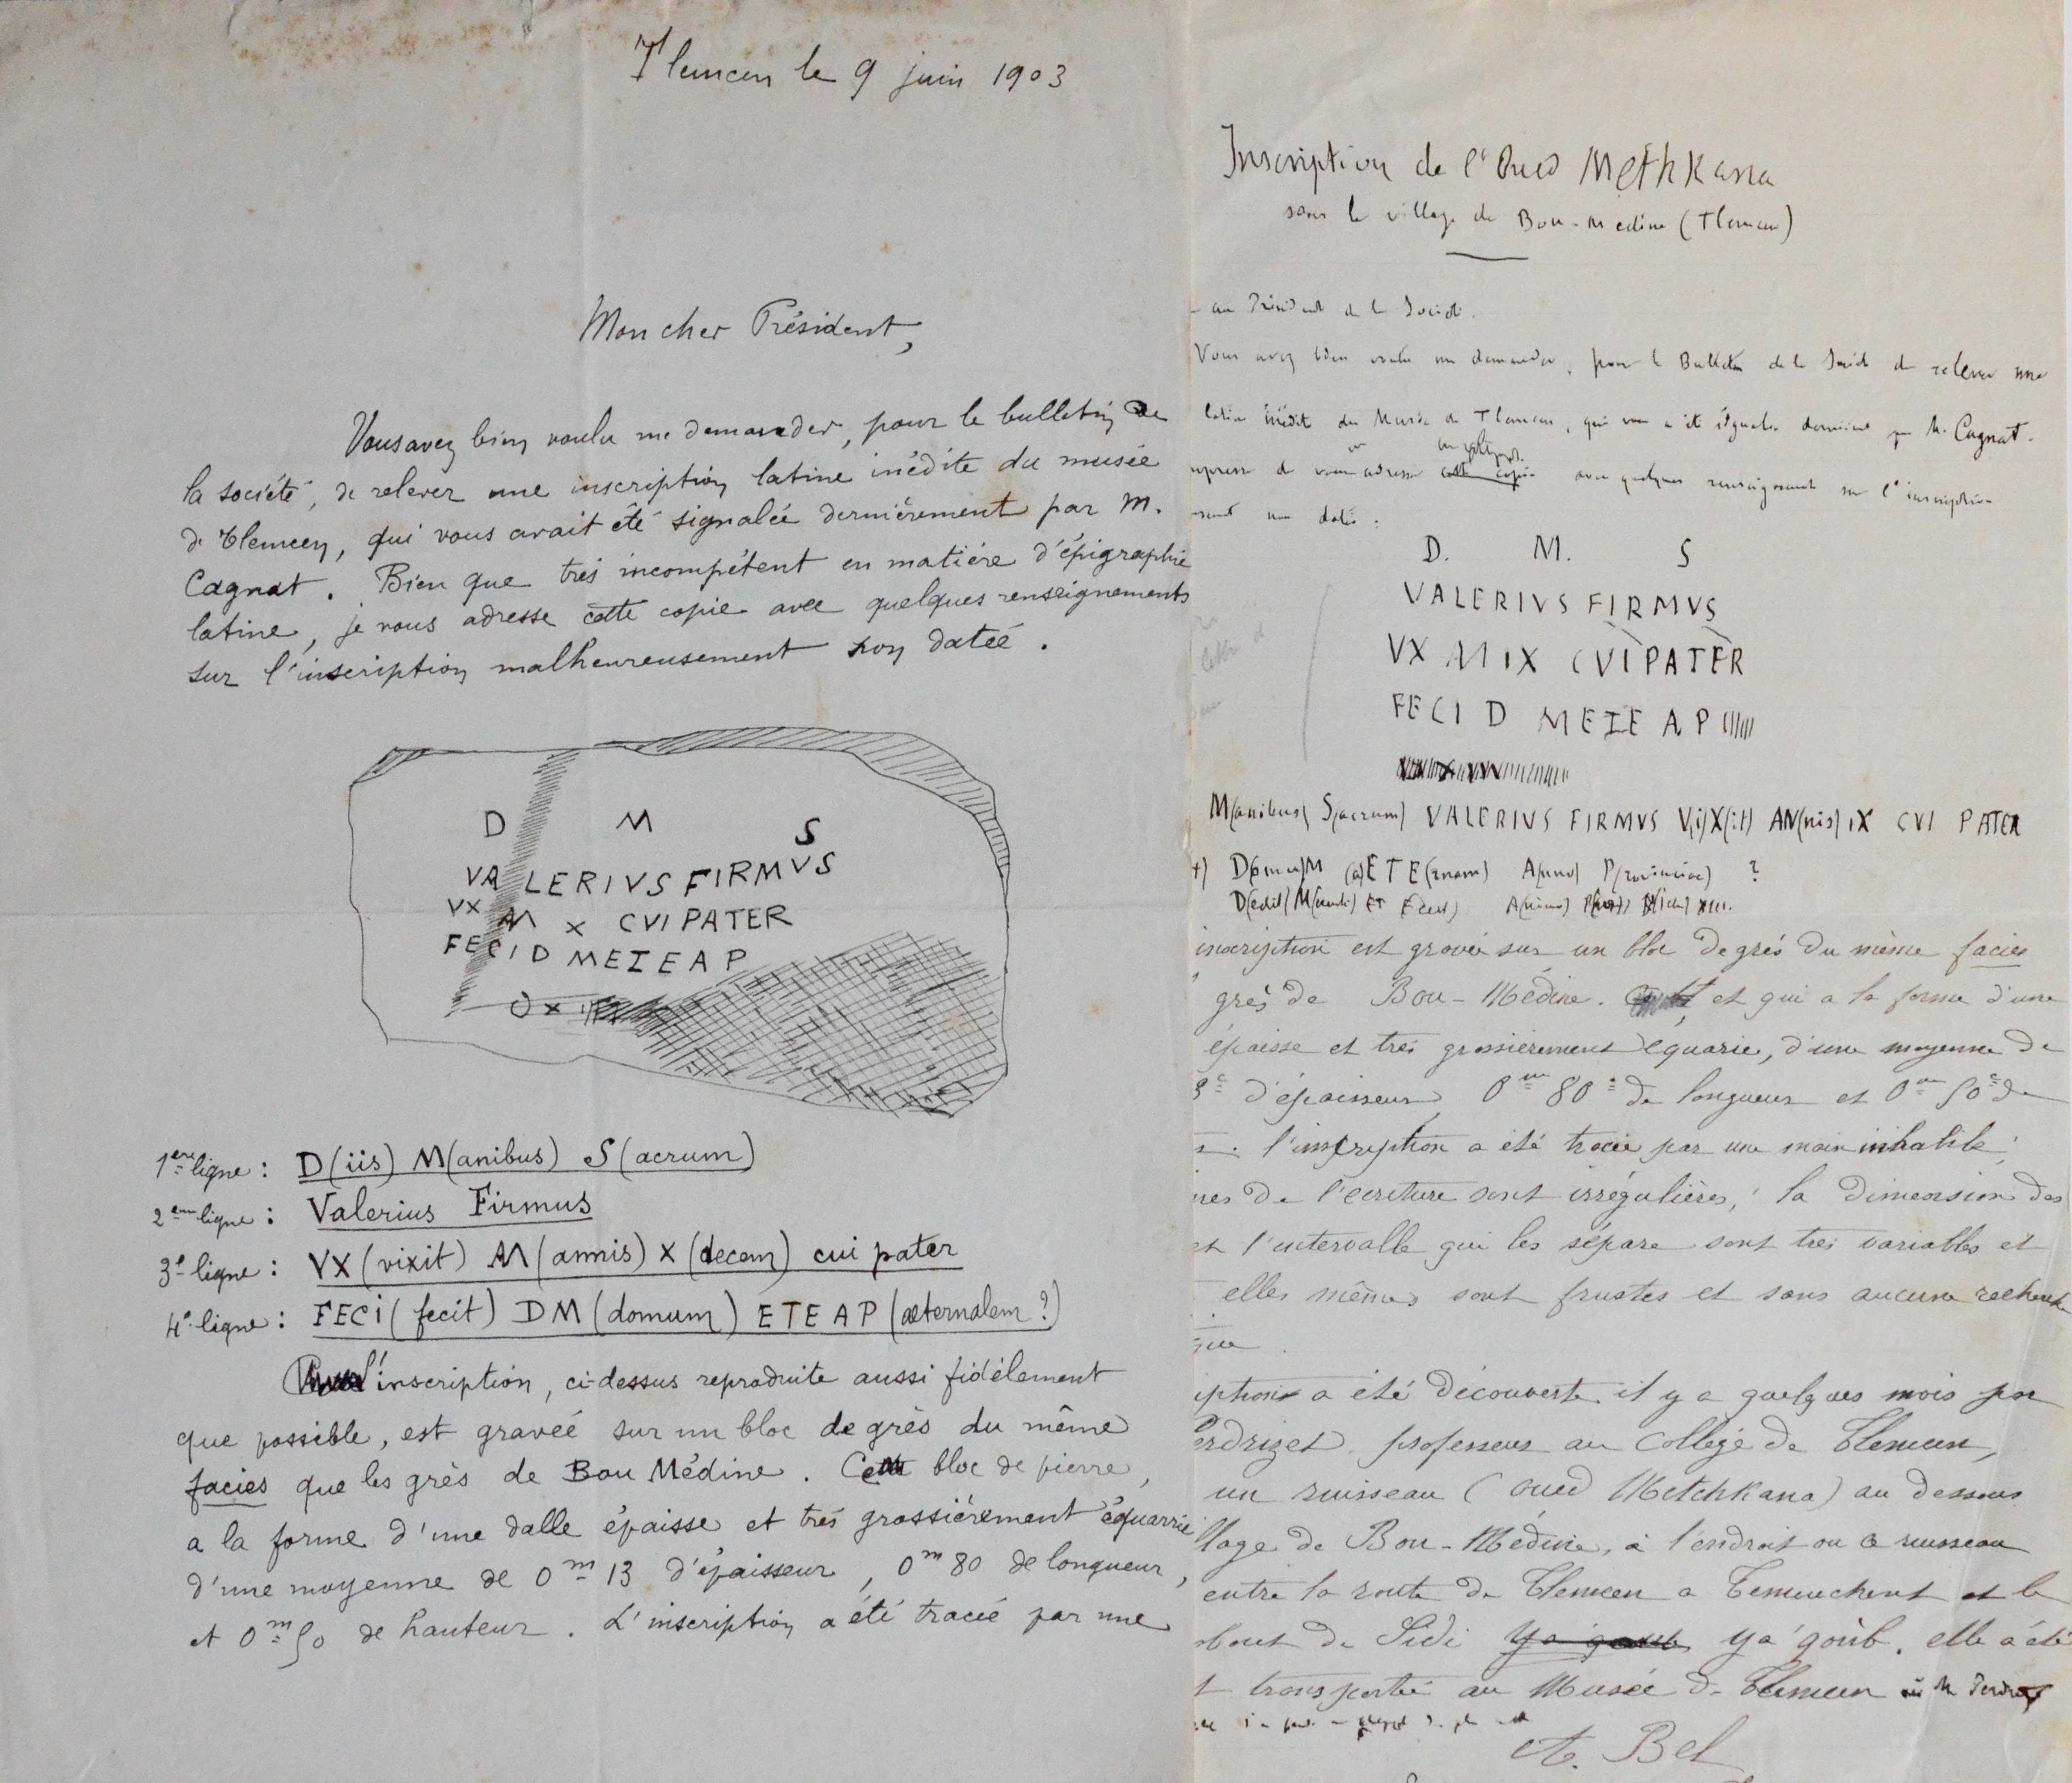 Tlemcen le 9 juin 1903
Mon cher Président,
Vous avez bien voulu me demander, pour le bulletin de
la société, de relever une inscription latine inédite du musée
de Tlemcen, qui vous avait été signalée dernièrement par M.
Cagnat. Bien que très incompétent en matière d'épigraphie
latine, je vous adresse cette copie avec quelques renseignements
sur l'inscription malheureusement non datée.
D M S
VALERIVS FIRMVS
VX AN X CVI PATER
FECI D METE A P
X
1ere ligne : D(iis) M(anibus) S(acrum)
2eme ligne : Valerius Firmus
3e ligne : VX (vixit) AN (annis) X (decem) cui pater
4e ligne : FECI (fecit) DM (domum) ETEAP (æternalem ?)
l'inscription, ci-dessus reproduite aussi fidèlement
que possible, est gravée sur un bloc de grès du même
facies que les grès de Bou Médine. Ce bloc de pierre,
a la forme d'une dalle épaisse et très grossièrement équarrie
d'une moyenne de 0m 13 d'épaisseur, 0m 80 de longueur,
et 0m 50 de hauteur. L'inscription a été tracée par une
Inscription de l'Oued Methkana
sous le village de Bou-Medine (Tlemcen)
au Président de la Société.
Vous avez bien voulu me demander, pour le Bulletin de la Société de relever une
latine inédite du Musée de Tlemcen, qui vous a été signalée dernièrement par M. Cagnat.
de vous adresser copie avec quelques renseignements sur l'inscription
non datée :
D. M. S
VALERIVS FIRMVS
VX AN IX CVI PATER
FECI D METE A P
M(anibus) S(acrum) VALERIVS FIRMVS V(i)X(it) AN(nis) IX CVI PATER
D(omu)M (a)ETE(rnam) A(nno) P(rovinciae) ?
D(edit) M(erenti) ET F(ecit) A(nno) XIII.
inscription est gravée sur un bloc de grés du même facies
grès de Bou-Médine. et qui a la forme d'une
épaisse et très grossièrement équarie, d'une moyenne de
3c d'épaisseur 0m 80c de longueur et 0m 50c de
l'inscription a été tracée par une main inhabile ;
de l'écriture sont irrégulières, la dimension des
et l'intervalle qui les sépare sont très variables et
elles mêmes sont frustes et sans aucune recherche
iption a été découverte il y a quelques mois par
erdrizet professeur au Collège de Tlemcen,
un ruisseau (oued Metchkana) au dessous
llage de Bou-Médine, à l'endroit ou ce ruisseau
entre la route de Tlemcen a Temouchent et le
about de Sidi Ya'goûb. elle a été
t transportée au Musée de Tlemcen
A. Bel